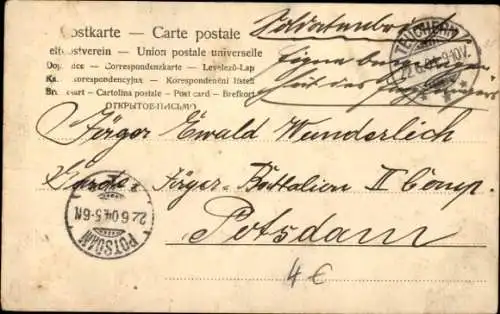 Postkarte – Carte postale
Weltpostverein – Union postale universelle
Dopisnice – Correspondenzkarte – Levelező-Lap
Ka korespondencyjna – Korespondenční lístek
Br kaart – Cartolina postale – Post card – Brefkort
ОТКРЫТОЕ ПИСЬМО
Soldatenbrief
Eigne
heit des Empfängers
TEUCHERN
22.6.04.9-10V.
Jäger Ewald Wunderlich
Garde-Jäger-Battalion II Comp.
Potsdam
POTSDAM
22.6.04.5-6N.
4 €